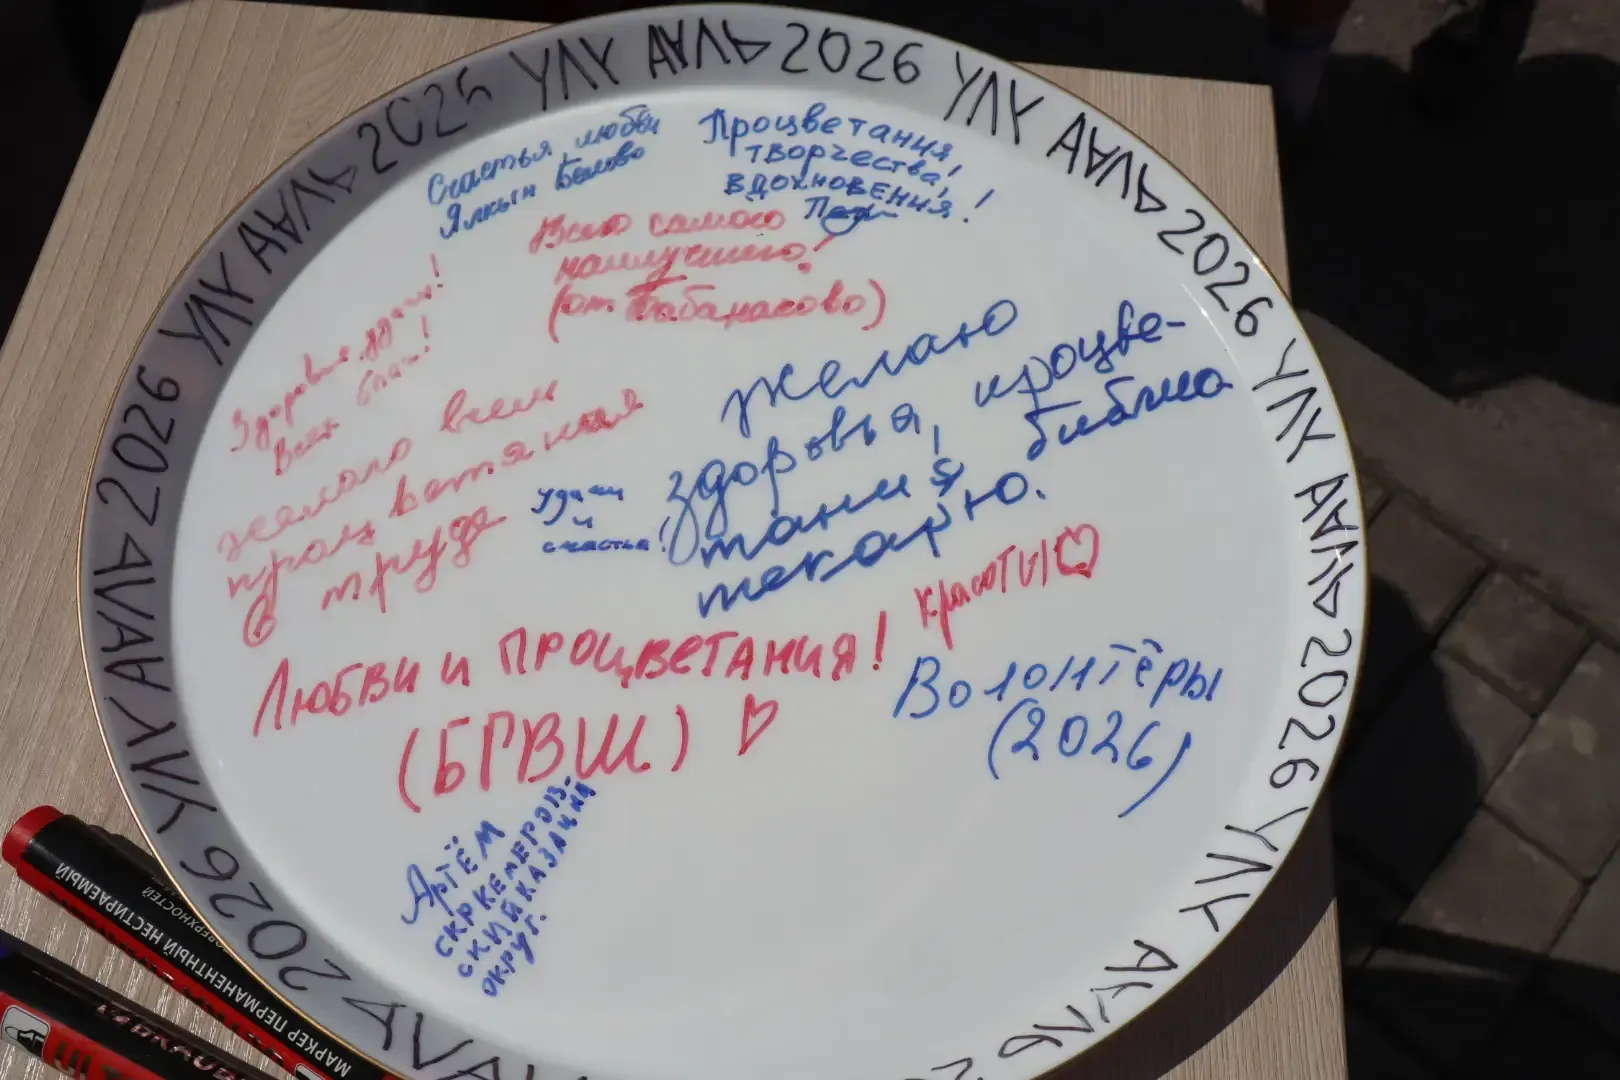 УЛУ ААЛЬ 2026 УЛУ ААЛЬ 2026 УЛУ ААЛЬ 2026 УЛУ ААЛЬ 2026 УЛУ ААЛЬ 2026 УЛУ ААЛЬ 2026 УЛУ ААЛЬ
Счастья любви
Ялкын
Процветания,
творчества,
вдохновения!
Всего самого
наилучшего!
(от
Здоровья, удачи!
Всех благ!
желаю всем
процветания
в труде
Удачи
и
счастья!
желаю
здоровья, процве-
тания библио
текарю.
Любви и процветания!
(БГВШ)
красоты
Волонтёры
(2026)
Артём
округ.
МАРКЕР ПЕРМАНЕНТНЫЙ НЕСТИРАЕМЫЙ